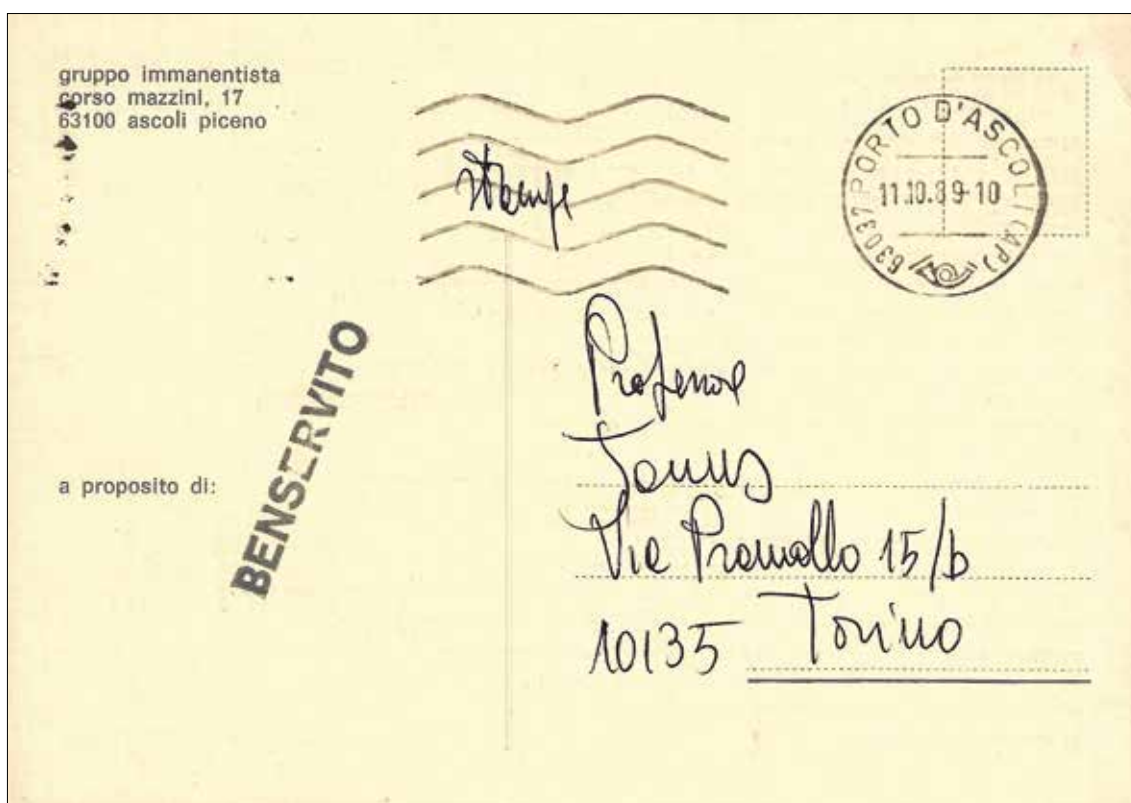 gruppo immanentista
corso mazzini, 17
63100 ascoli piceno
stampe
63037 PORTO D'ASCOLI (AP)
11.10.89-10
BENSERVITO
a proposito di:
Professore
Via Pramollo 15/b
10135 Torino